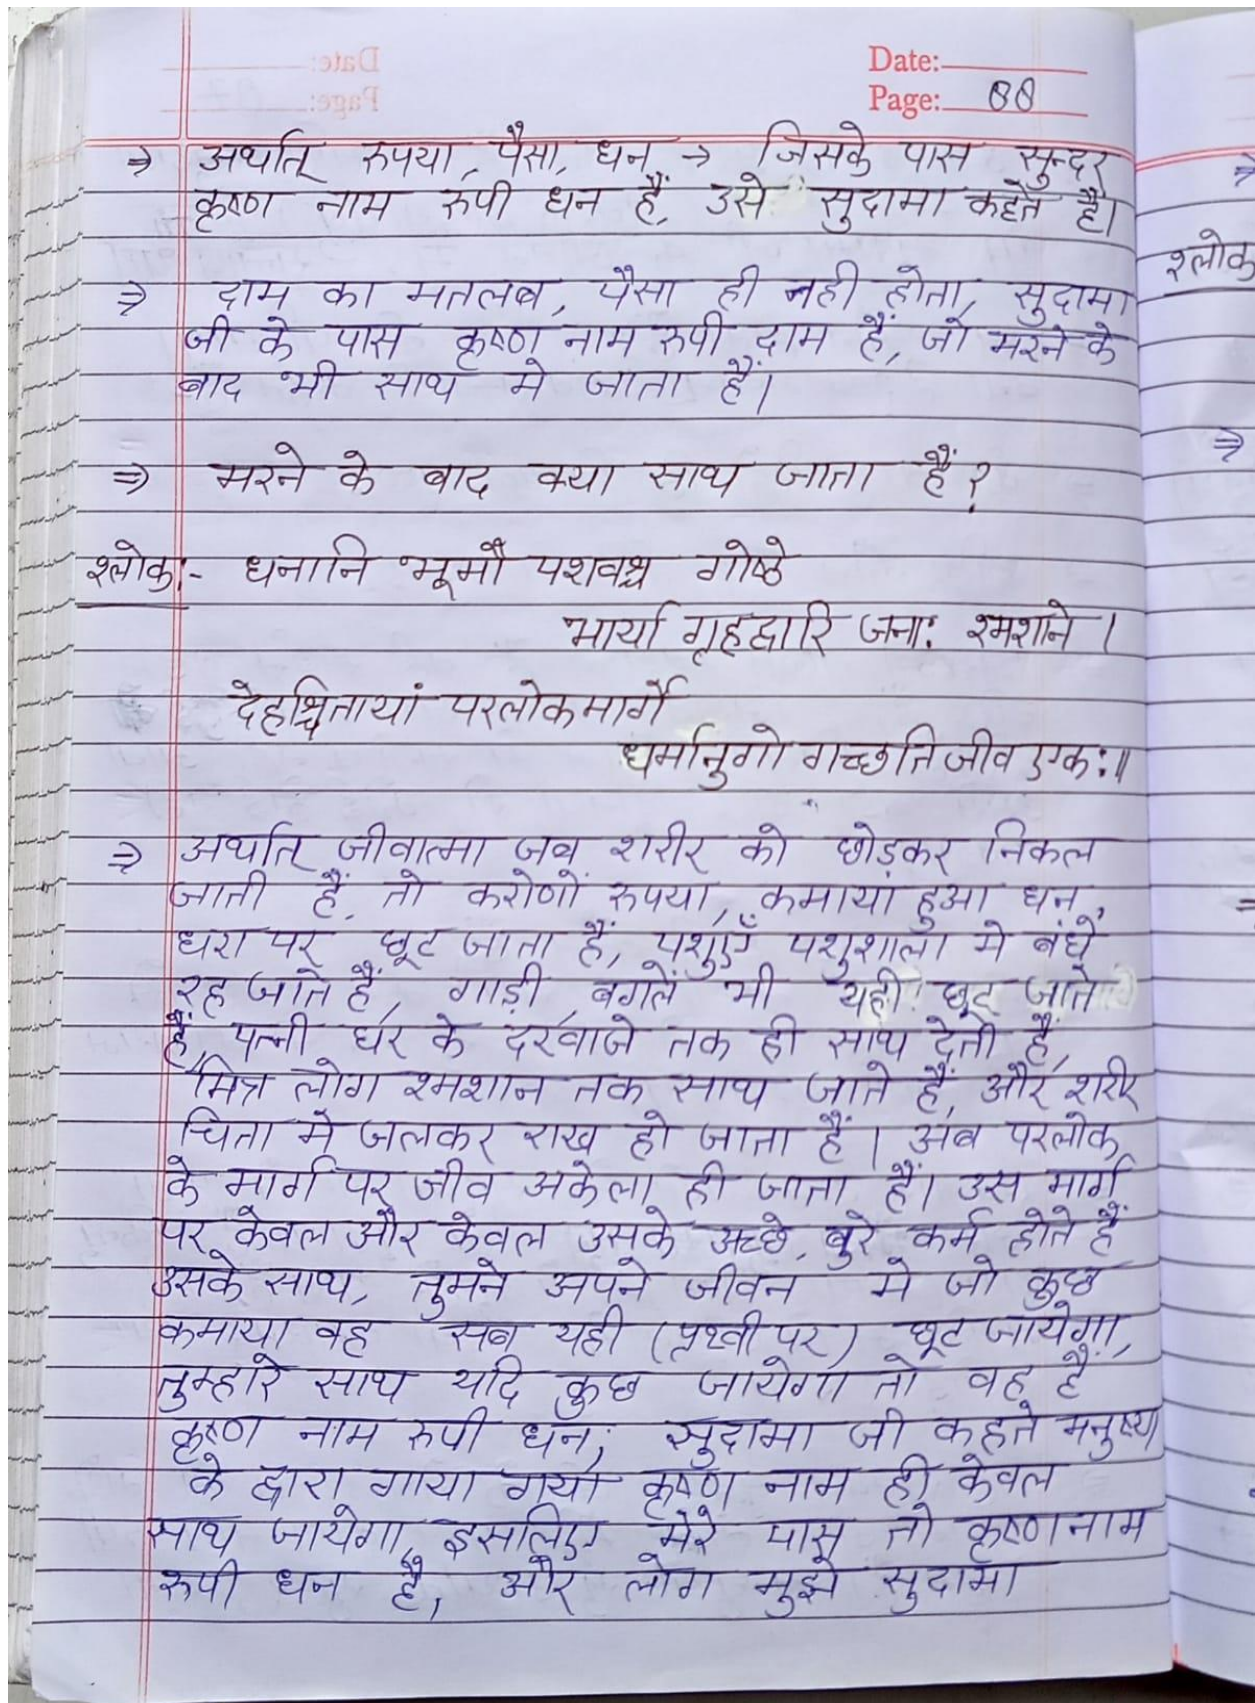 Date:
Page: 88
⇒ अर्थात् रुपया, पैसा, धन → जिसके पास सुन्दर
कृष्ण नाम रुपी धन हैं, उसे सुदामा कहते हैं।
⇒ दाम का मतलब, पैसा ही नही होता, सुदामा
जी के पास कृष्ण नाम रुपी दाम हैं, जो मरने के
बाद भी साथ मे जाता हैं।
⇒ मरने के बाद क्या साथ जाता हैं?
श्लोक:- धनानि भूमौ पशवश्च गोष्ठे
भार्या गृहद्वारि जना: श्मशाने।
देहश्चितायां परलोकमार्गे
धर्मानुगो गच्छति जीव एक:॥
⇒ अर्थात् जीवात्मा जब शरीर को छोड़कर निकल
जाती हैं, तो करोणों रुपया, कमाया हुआ धन,
धरा पर छूट जाता हैं, पशुएँ पशुशाला मे बंधे
रह जाते हैं, गाड़ी, बगलें भी यही छूट जाते
हैं, पत्नी घर के दरवाजे तक ही साथ देती हैं,
मित्र लोग श्मशान तक साथ जाते हैं, और शरीर
चिता मे जलकर राख हो जाता हैं। अब परलोक
के मार्ग पर जीव अकेला ही जाता हैं। उस मार्ग
पर केवल और केवल उसके अच्छे, बुरे कर्म होते हैं
उसके साथ, तुमने अपने जीवन मे जो कुछ
कमाया वह सब यही (पृथ्वी पर) छूट जायेगा,
तुम्हारे साथ यदि कुछ जायेगा तो वह हैं
कृष्ण नाम रुपी धन, सुदामा जी कहते मनुष्य
के द्वारा गाया गया कृष्ण नाम ही केवल
साथ जायेगा, इसलिए मेरे पास तो कृष्णनाम
रुपी धन हैं, और लोग मुझे सुदामा
श्लोक